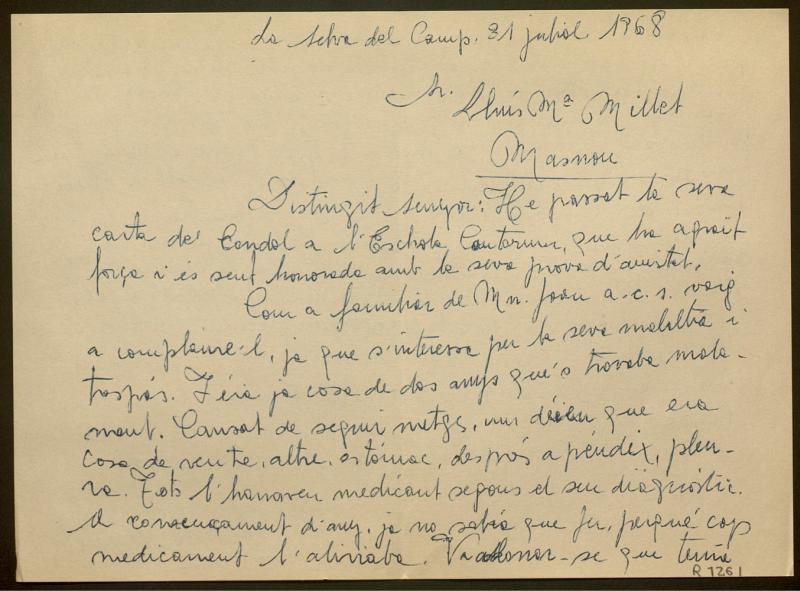 La Selva del Camp. 31 juliol 1968
Sr. Lluís Mª Millet
Masnou
Distingit senyor: He passat la seva
carta de condol a l'Eschola Cantorum, que ha agrait
força i és sent honorada amb la seva prova d'amistat.
Com a familiar de Mn. Joan a.c.s. vaig
a complaure'l, ja que s'interessa per la seva malaltia i
traspás. Feia ja cosa de dos anys que's trovaba mala-
ment. Cansat de seguir metges, uns deien que era
cosa de ventre, altre, estómac, desprós apéndix, pleu-
ra. Tots l'hanaven medicant segons el seu diagnóstic.
A començament d'any, ja no sabia que fer, perqué cap
medicament l'aliviaba. Va donar-se que tenia
R 1261